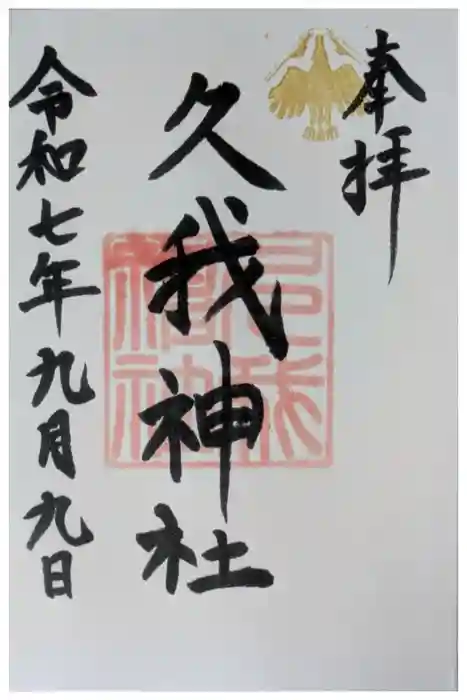 奉拝
久我神社
令和七年九月九日